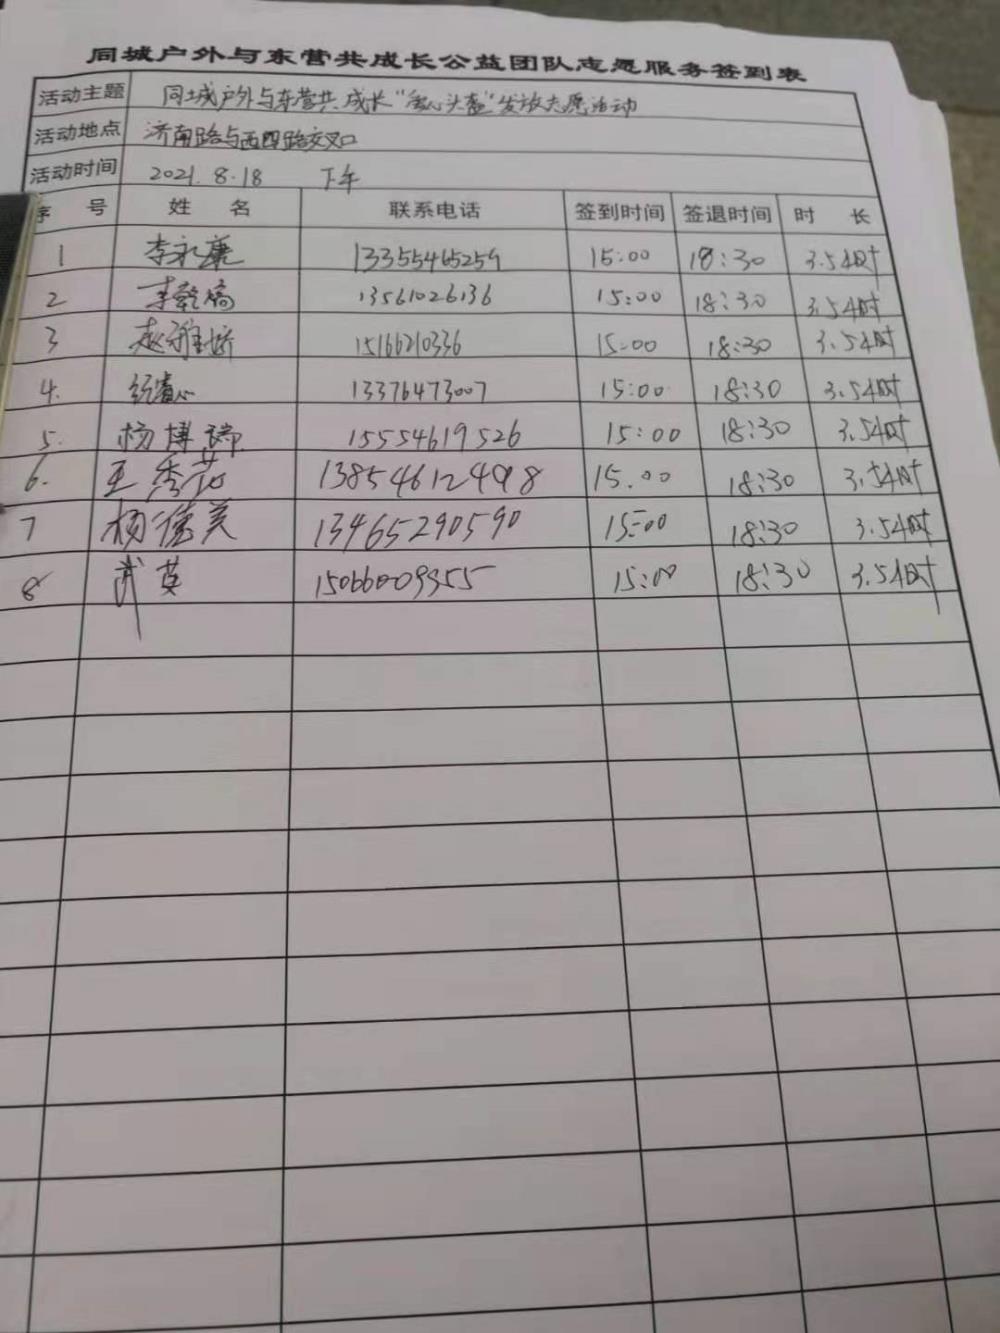 同城户外与东营共成长公益团队志愿服务签到表
活动主题 同城户外与东营共成长“爱心头盔”发放志愿活动
活动地点 济南路与西四路交叉口
活动时间 2021.8.18 下午
序号 姓名 联系电话 签到时间 签退时间 时长
1 李永康 13355465259 15:00 18:30 3.5小时
2 李 13561026136 15:00 18:30 3.5小时
3 赵雅娇 15166210336 15:00 18:30 3.5小时
4. 13376473007 15:00 18:30 3.5小时
5. 杨博瑞 15554619526 15:00 18:30 3.5小时
6. 王秀花 13854612498 15:00 18:30 3.5小时
7 杨德美 13465290590 15:00 18:30 3.5小时
8 武英 15066009355 15:00 18:30 3.5小时